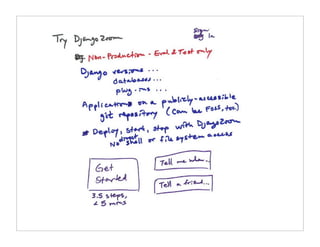 Sign In
Try DjangoZoom
Non-Production - Eval & Test only
Django versions ...
databases...
plug-ins ...
Applications on a publicly-accessible
git repository (Can be FOSS, too)
Deploy, start, stop with DjangoZoom
No direct shell or file system access
Get Started
Tell me when..
Tell a friend...
3.5 steps,
< 5 mins